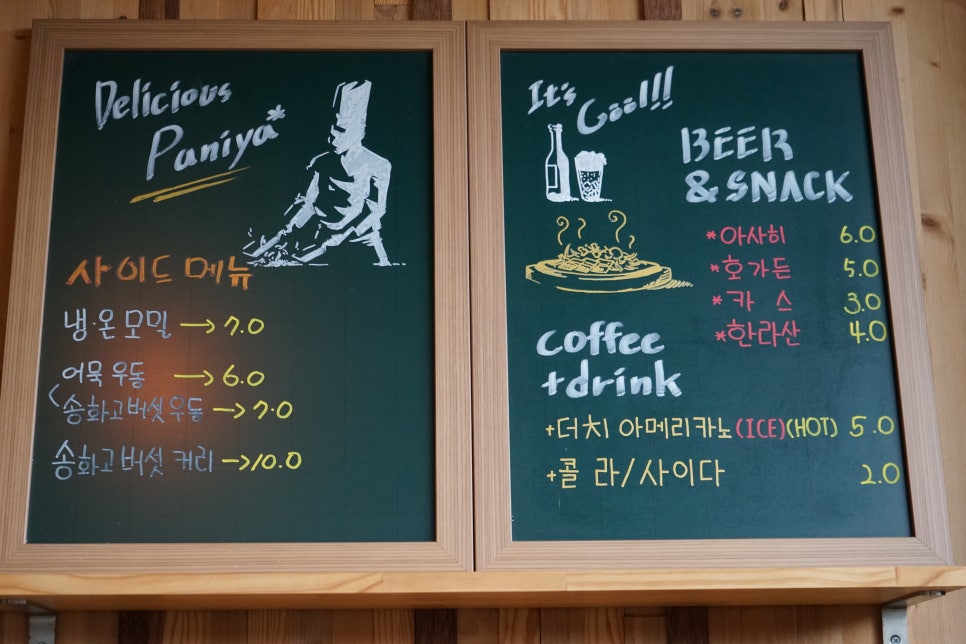 Delicious
Paniya*
사이드 메뉴
냉·온 모밀 → 7.0
어묵 우동 → 6.0
송화고버섯우동 → 7.0
송화고버섯 커리 → 10.0
It's
Cool!!!
BEER
& SNACK
*아사히 6.0
*호가든 5.0
*카 스 3.0
*한라산 4.0
coffee
+drink
+더치 아메리카노(ICE)(HOT) 5.0
+콜 라/사이다 2.0